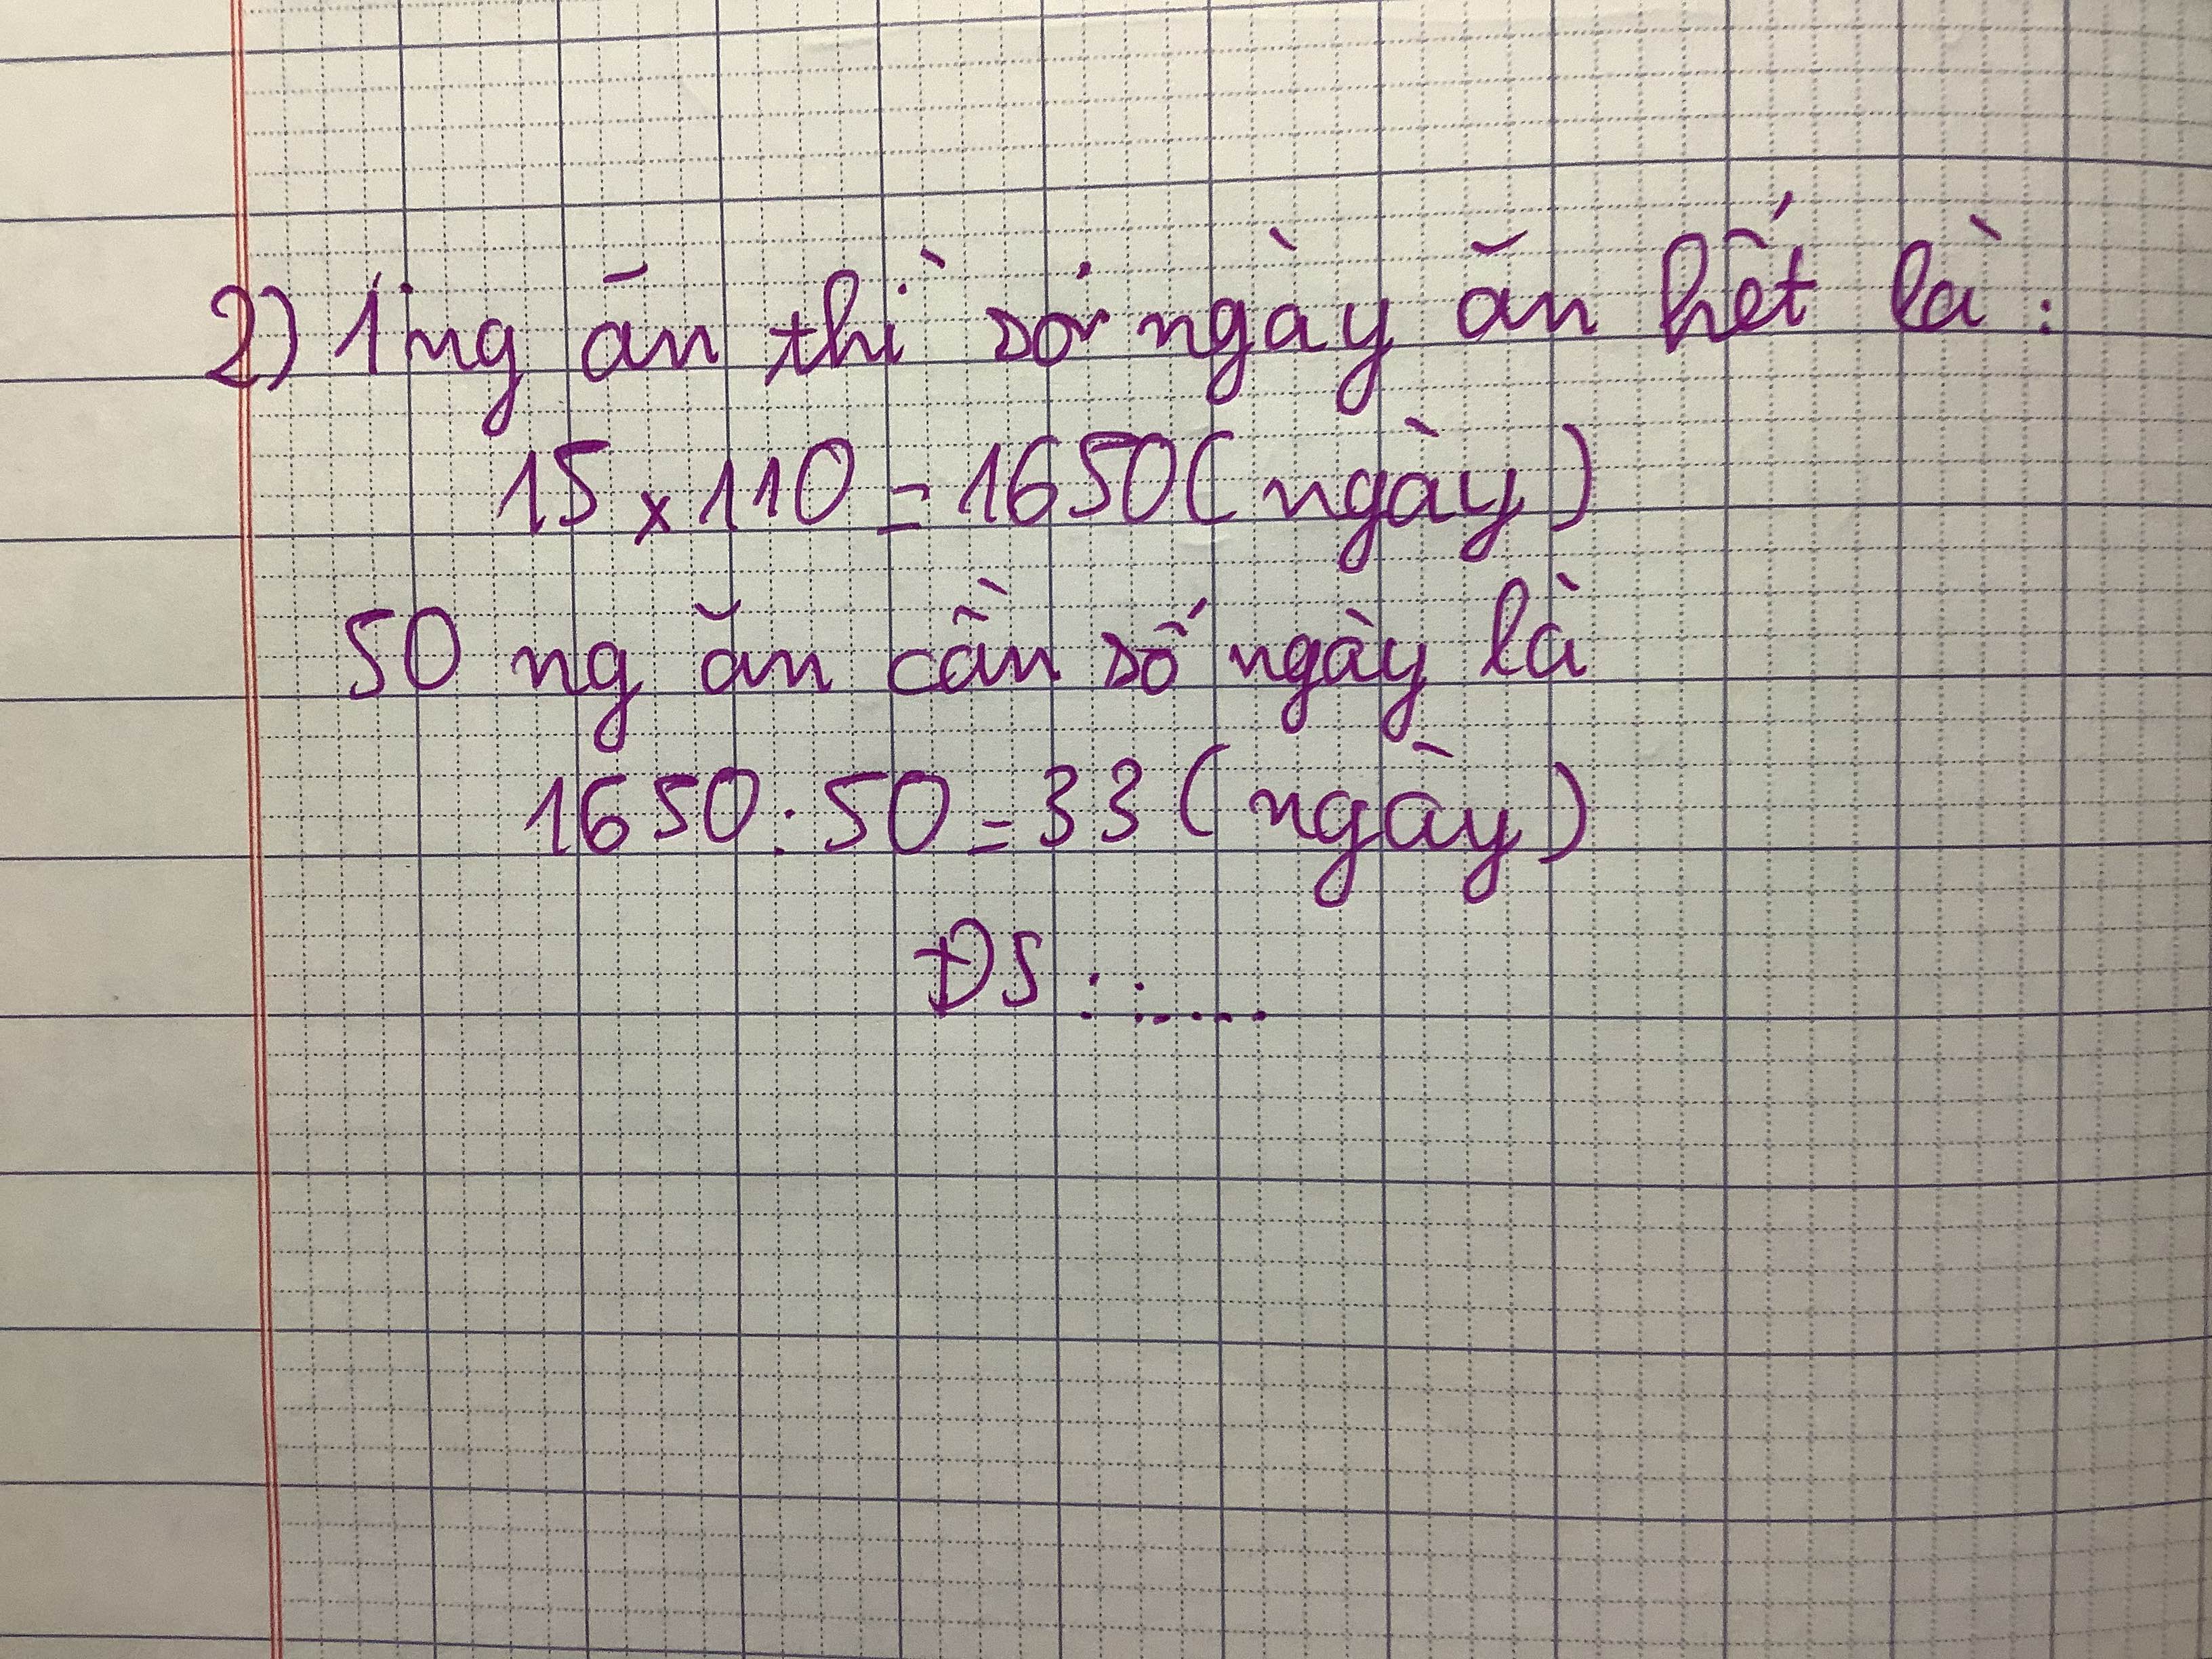 2) 1 ng ăn thì số ngày ăn hết là :
15 x 110 = 1650 (ngày)
50 ng ăn cần số ngày là
1650 : 50 = 33 (ngày)
ĐS : .....